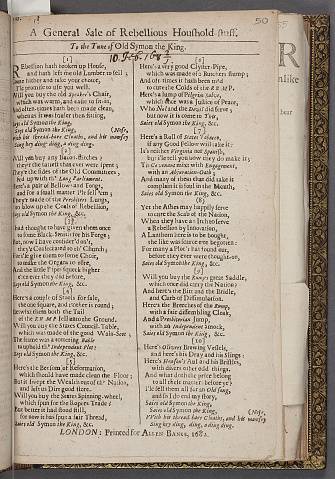 50
A General Sale of Rebellious Houshold-stuff.
To the Tune of Old Symon the King.
[1]
REbellion hath broken up House,
and hath left me old Lumber to sell;
Come hither and take your choice,
I'le promise to use you well.
Will you buy the old Speaker's Chair,
which was warm, and easie to sit in,
And often-times hath been made clean,
when as it was fouler than fitting,
Says old Symon the King,
Says old Symon the King, (Nose,
With his thread-bare Cloaths, and his
Sing hey ding, ding, a ding ding.
[2]
Will you buy any Bacon-flitches?
They're the sides of the Old Committees,
Fed up with th' Long Parliament.
Here's a pair of Bellows and Tongs,
and for a small matter I'le sell 'em;
They're made of the Presbiters Lungs,
to blow up the Coals of Rebellion,
Says old Symon the King, &c.
[3]
I had thought to have given them once
to some Black-Smith for his Forge;
But, now I have consider'd on't,
they're Consecrated to th' Church;
For I'le give them to some Choir,
to make the Organs to
And the little Pipes squeek higher
than ever they did before,
Says old Symon the King, &c.
[4]
Here's a couple of Stools for sale,
the one square, and t'other is round;
Betwixt them both the Tail
of the RUMP fell unto the Ground.
Will you buy the States Council-Table,
which was made of the good Wain-Scot;
The frame was a tottering Babel
to uphold th' Independent Plot;
Says old Symon the King, &c.
[5]
Here's the Beesom of Reformation,
which should have made clean the Floor;
But it swept the Wealth out of th' Nation,
and left us Dirt good store.
Will you buy the States Spinning-wheel,
which spun for the Ropers Trade;
But better it had stood still,
for now it has spun a fair Thread,
Says old Symon the King, &c.
[6]
Here's a very good Clyster-Pipe,
which was made of a Butchers stump;
And oft-times it hath been us'd
to cure the Colds of the RUMP.
Here's a lump of Pilgrim Salve,
which once was a Justice of Peace,
Who Noll and the Devil did serve;
but now it is come to This,
Says old Symon the King, &c.
[7]
Here's a Roll of States Tobacco,
if any Good-fellow will take it:
It's neither Virginia nor Spanish,
but I'le tell you how they do make it;
'Tis Covenant mixt with Engagement,
with an Abjuration-Oath;
And many of them that did take it
complain it is foul in the Mouth,
Says old Symon the King, &c.
[8]
Yet the Ashes may happily serve
to cure the Scab of the Nation,
When they have an Itch to serve
a Rebellion by Innovation,
A Lanthorn here is to be bought,
the like was scarce e're begotten:
For many a Plot't has found out,
before they ever were thought-on,
Says old Symon the King, &c.
[9]
Will you buy the Rump's great Saddle,
which once did carry the Nation?
And here's the Bitt and the Bridle,
and Curb of Dissimulation.
Here's the Breeches of the Rump,
with a fair dissembling Cloak,
And a Presbyterian Jump,
with an Independent Smock,
Says old Symon the King, &c.
[10]
Here's Oliver's Brewing Vessels,
and here's his Dray and his Slings:
Here's Hewson's Aul and his Bristles,
with divers other odd things.
And what doth the price belong
to all these matters before ye?
I'le sell them all for an Old song,
and so I do end my story,
Says old Symon the King,
Says old Symon the King, (Nose,
With his thread-bare Cloaths, and his
Sing hey ding, ding, a ding ding.
LONDON: Printed for Allen Banks, 1682.